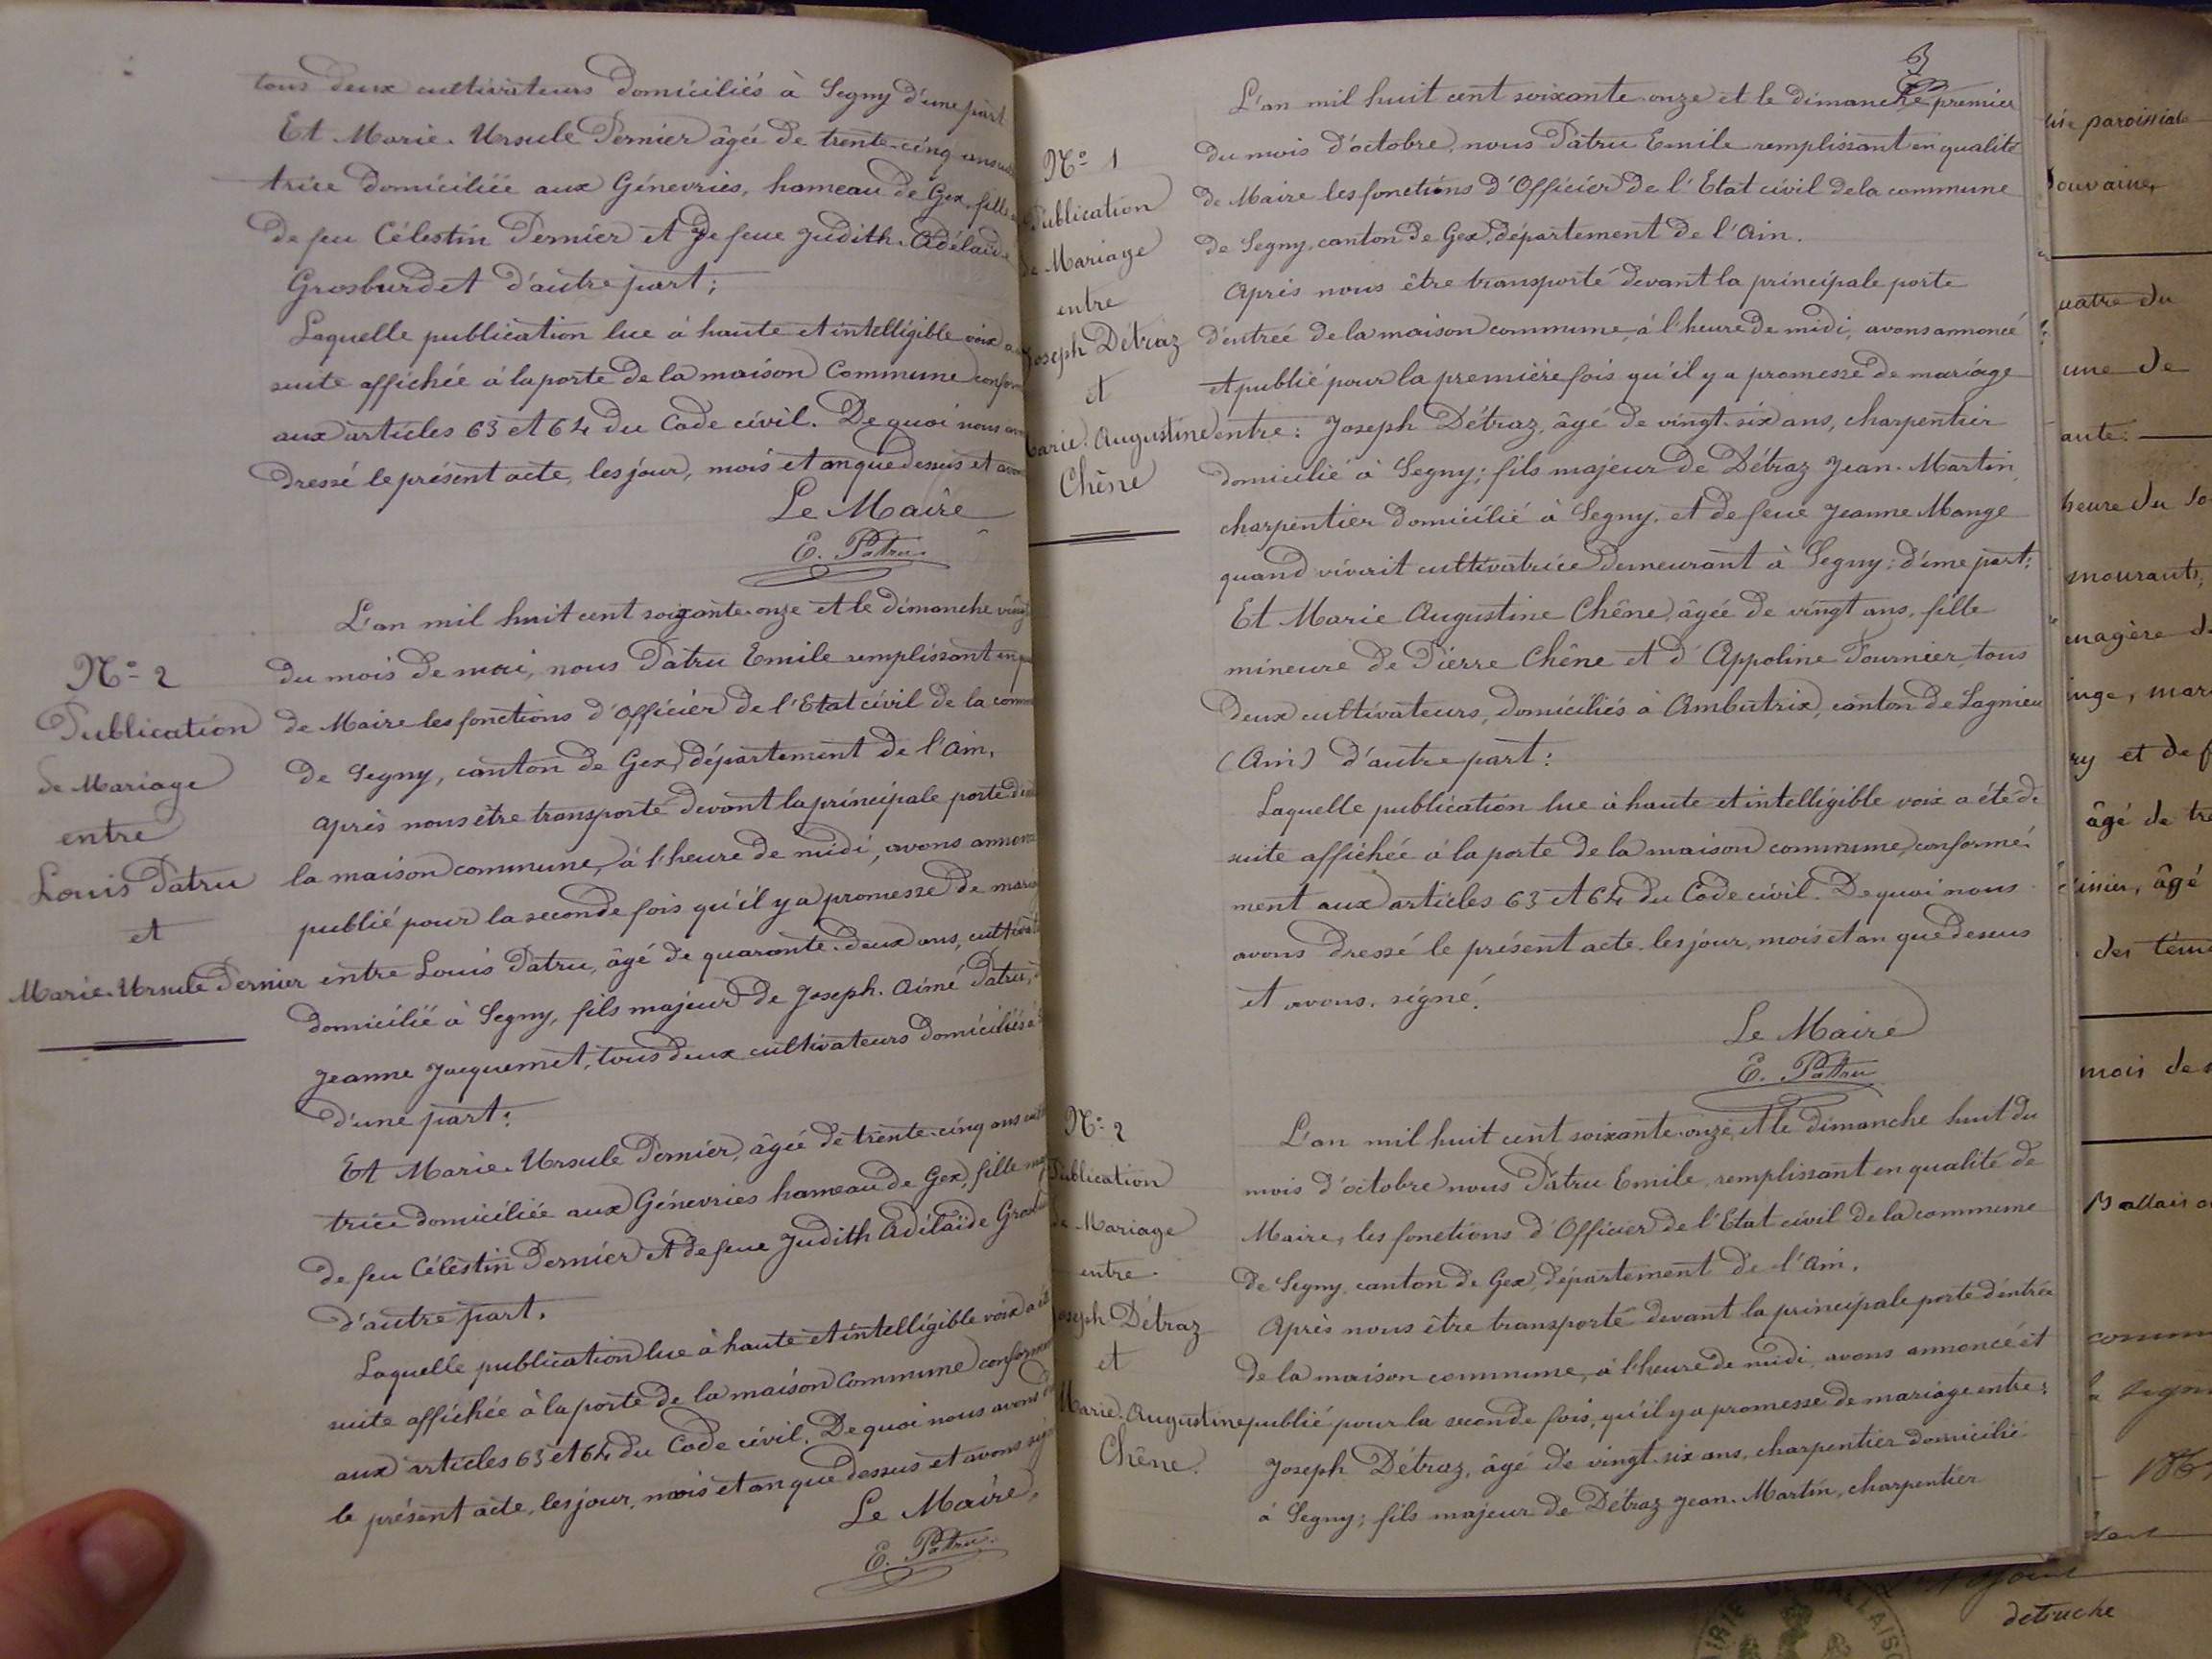 tous deux cultivateurs domiciliés à Segny d'une part
Et Marie-Ursule Pernier âgée de trente-cinq ans
trice domiciliée aux Génevries, hameau de Gex, fille
de feu Célestin Pernier et de feue Judith-Adélaïde
Grosburdet d'autre part;
Laquelle publication lue à haute et intelligible voix a
suite affichée à la porte de la maison Commune conform
aux articles 63 et 64 du Code civil. De quoi nous av
dressé le présent acte, les jour, mois et an que dessus et avon
Le Maire
E. Patru
N° 2
Publication
de Mariage
entre
Louis Patru
et
Marie-Ursule Pernier
L'an mil huit cent soixante-onze et le dimanche vingt
du mois de mai, nous Patru Emile remplissant en qu
de Maire les fonctions d'Officier de l'Etat civil de la comm
de Segny, canton de Gex, département de l'Ain,
Après nous être transporté devant la principale porte d'e
la maison commune, à l'heure de midi, avons annon
publié pour la seconde fois qu'il y a promesse de maria
entre Louis Patru, âgé de quarante-deux ans, cultivat
domicilié à Segny, fils majeur de Joseph-Aimé Patru,
Jeanne Jacquemet, tous deux cultivateurs domiciliés à
d'une part;
Et Marie-Ursule Pernier, âgée de trente-cinq ans cult
trice domiciliée aux Génevries hameau de Gex, fille maj
de feu Célestin Pernier et de feue Judith Adélaïde Grosbu
d'autre part.
Laquelle publication lue à haute et intelligible voix a été
suite affichée à la porte de la maison Commune conformé
aux articles 63 et 64 du Code civil. De quoi nous avons d
le présent acte, les jour, mois et an que dessus et avons sig
Le Maire,
E. Patru
3
N° 1
Publication
de Mariage
entre
Joseph Détraz
et
Marie-Augustine
Chêne
L'an mil huit cent soixante-onze et le dimanche premier
du mois d'octobre, nous Patru Emile remplissant en qualité
de Maire les fonctions d'Officier de l'Etat civil de la commune
de Segny, canton de Gex, département de l'Ain.
Après nous être transporté devant la principale porte
d'entrée de la maison commune, à l'heure de midi, avons annoncé
et publié pour la première fois qu'il y a promesse de mariage
entre: Joseph Détraz, âgé de vingt-six ans, charpentier
domicilié à Segny; fils majeur de Détraz Jean-Martin,
charpentier domicilié à Segny, et de feue Jeanne Mange
quand vivait cultivatrice demeurant à Segny: d'une part;
Et Marie Augustine Chêne, âgée de vingt ans, fille
mineure de Pierre Chêne et d'Appoline Fournier, tous
deux cultivateurs, domiciliés à Ambutrix, canton de Lagnieu
(Ain) d'autre part:
Laquelle publication lue à haute et intelligible voix a été de
suite affichée à la porte de la maison commune, conformé-
ment aux articles 63 et 64 du Code civil. De quoi nous
avons dressé le présent acte les jour, mois et an que dessus
et avons signé.
Le Maire
E. Patru
N° 2
Publication
de Mariage
entre
Joseph Détraz
et
Marie-Augustine
Chêne.
L'an mil huit cent soixante-onze, et le dimanche huit du
mois d'octobre nous Patru Emile, remplissant en qualité de
Maire, les fonctions d'Officier de l'Etat civil de la commune
de Segny, canton de Gex, département de l'Ain.
Après nous être transporté devant la principale porte d'entrée
de la maison commune, à l'heure de midi, avons annoncé et
publié pour la seconde fois, qu'il y a promesse de mariage entre:
Joseph Détraz, âgé de vingt-six ans, charpentier domicilié
à Segny; fils majeur de Détraz Jean-Martin, charpentier
paroissiale
ouvaine,
uatre du
une de
ante.
heure du So
mourants,
enagère d
inge, mar
ry et de f
âgé de tre
issier, âgé
des témo
mois de
Ballais
comm
detruche